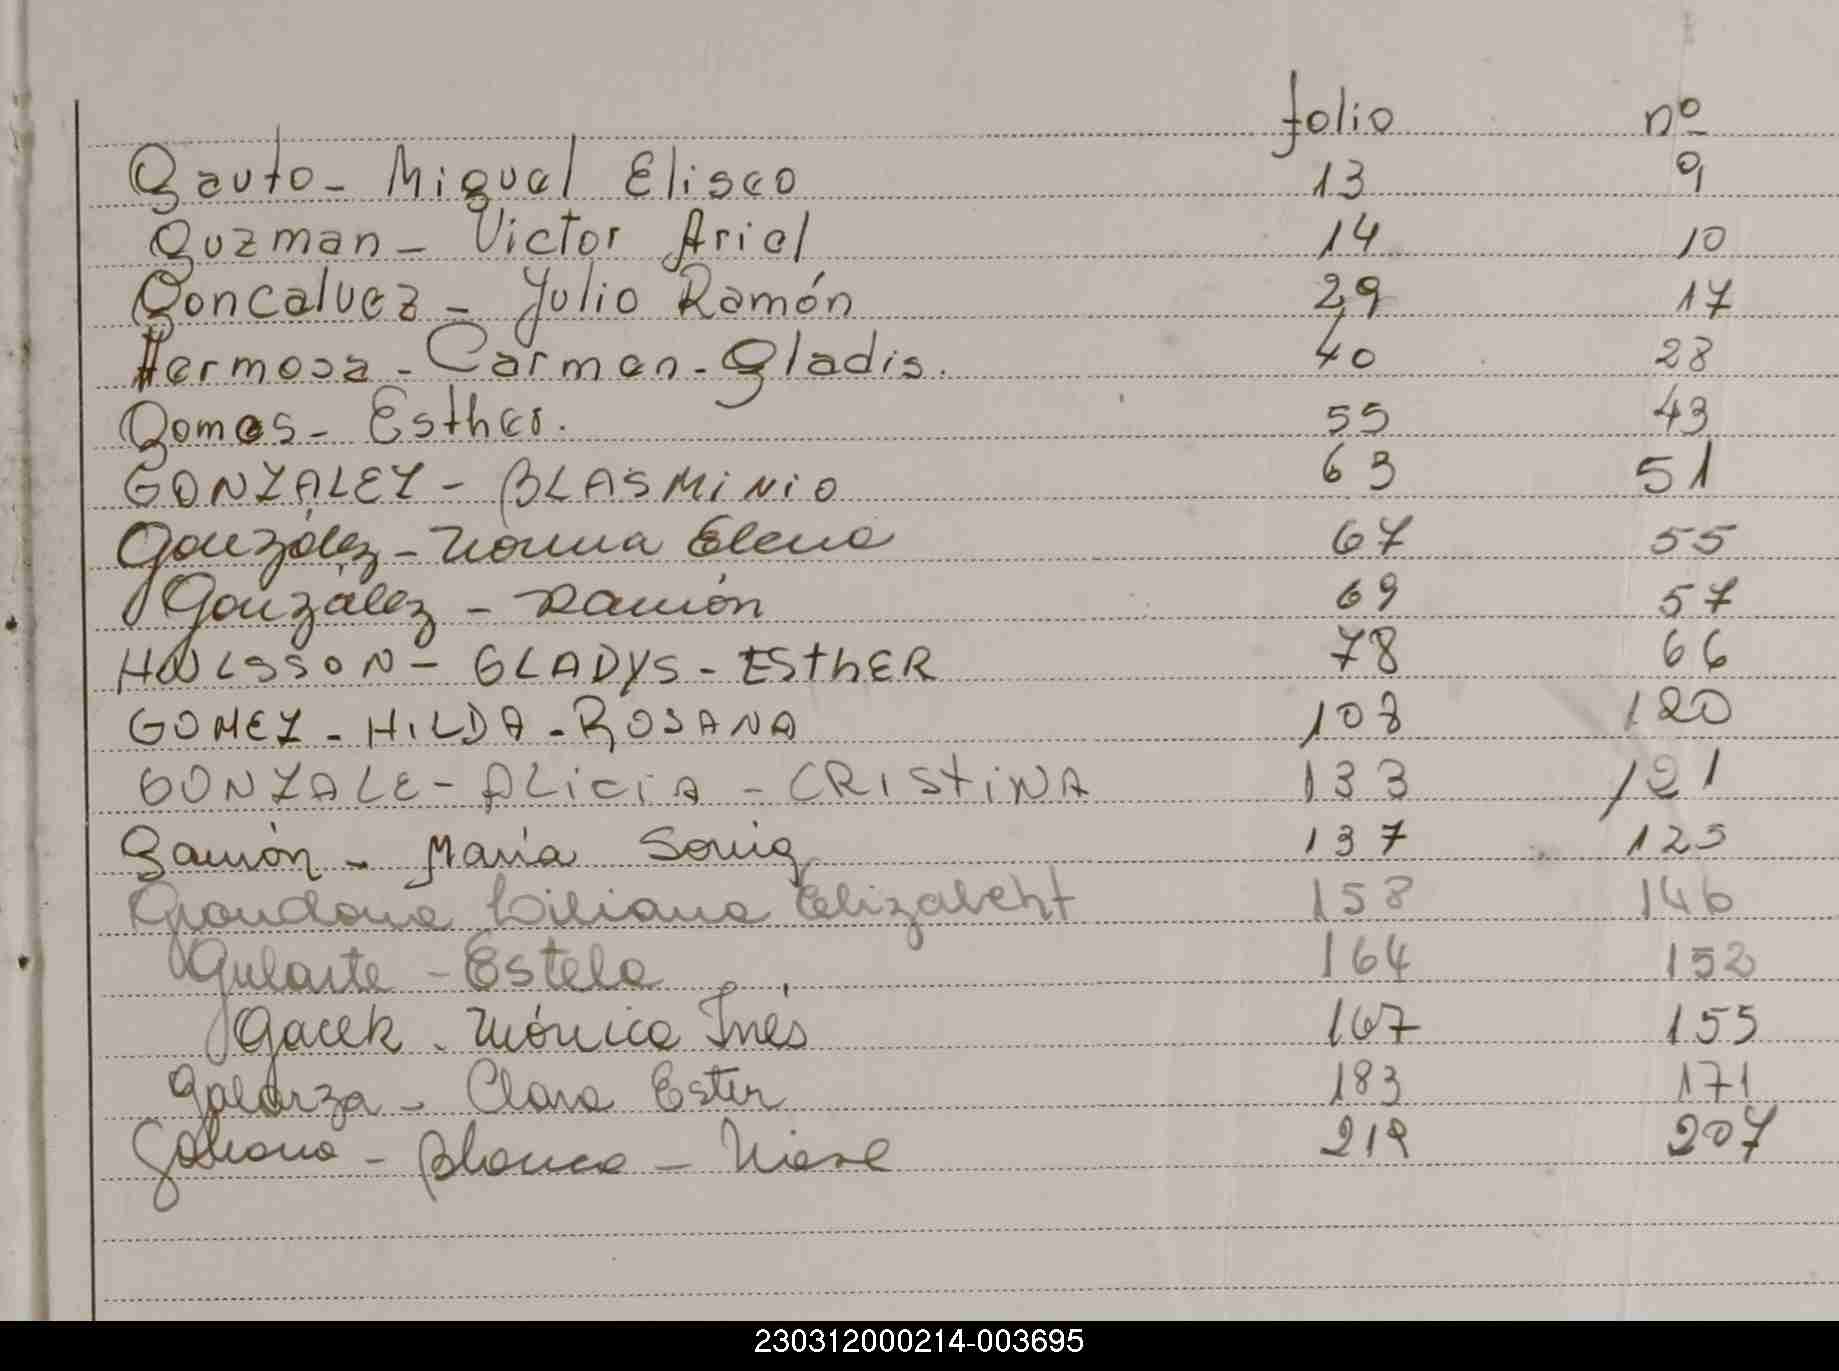 folio nº
Gauto - Miguel Eliseo 13 9
Guzman - Victor Ariel 14 10
Goncalvez - Julio Ramón 29 17
Hermosa - Carmen - Gladis. 40 28
Gomes - Esther. 55 43
GONZALEZ - BLASMINIO 63 51
González - Norma Elena 67 55
González - Ramón 69 57
GLADYS - ESthER 78 66
GOMEZ - HILDA - ROSANA 108 120
GONZALE - ALiCiA - CRIStiNA 133 121
Gamón - María Sonia 137 125
Grondona Liliana Elizabeht 158 146
Gularte - Estela 164 152
Gacek - Mónica Inés 167 155
Galarza - Clara Ester 183 171
Blanca - 219 207
230312000214-003695